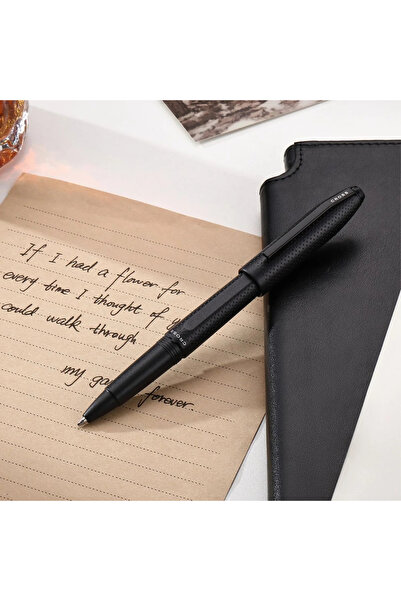 If I had a flower for
every time I thought of y
could walk through
my ga forever.
CROSS
CROSS